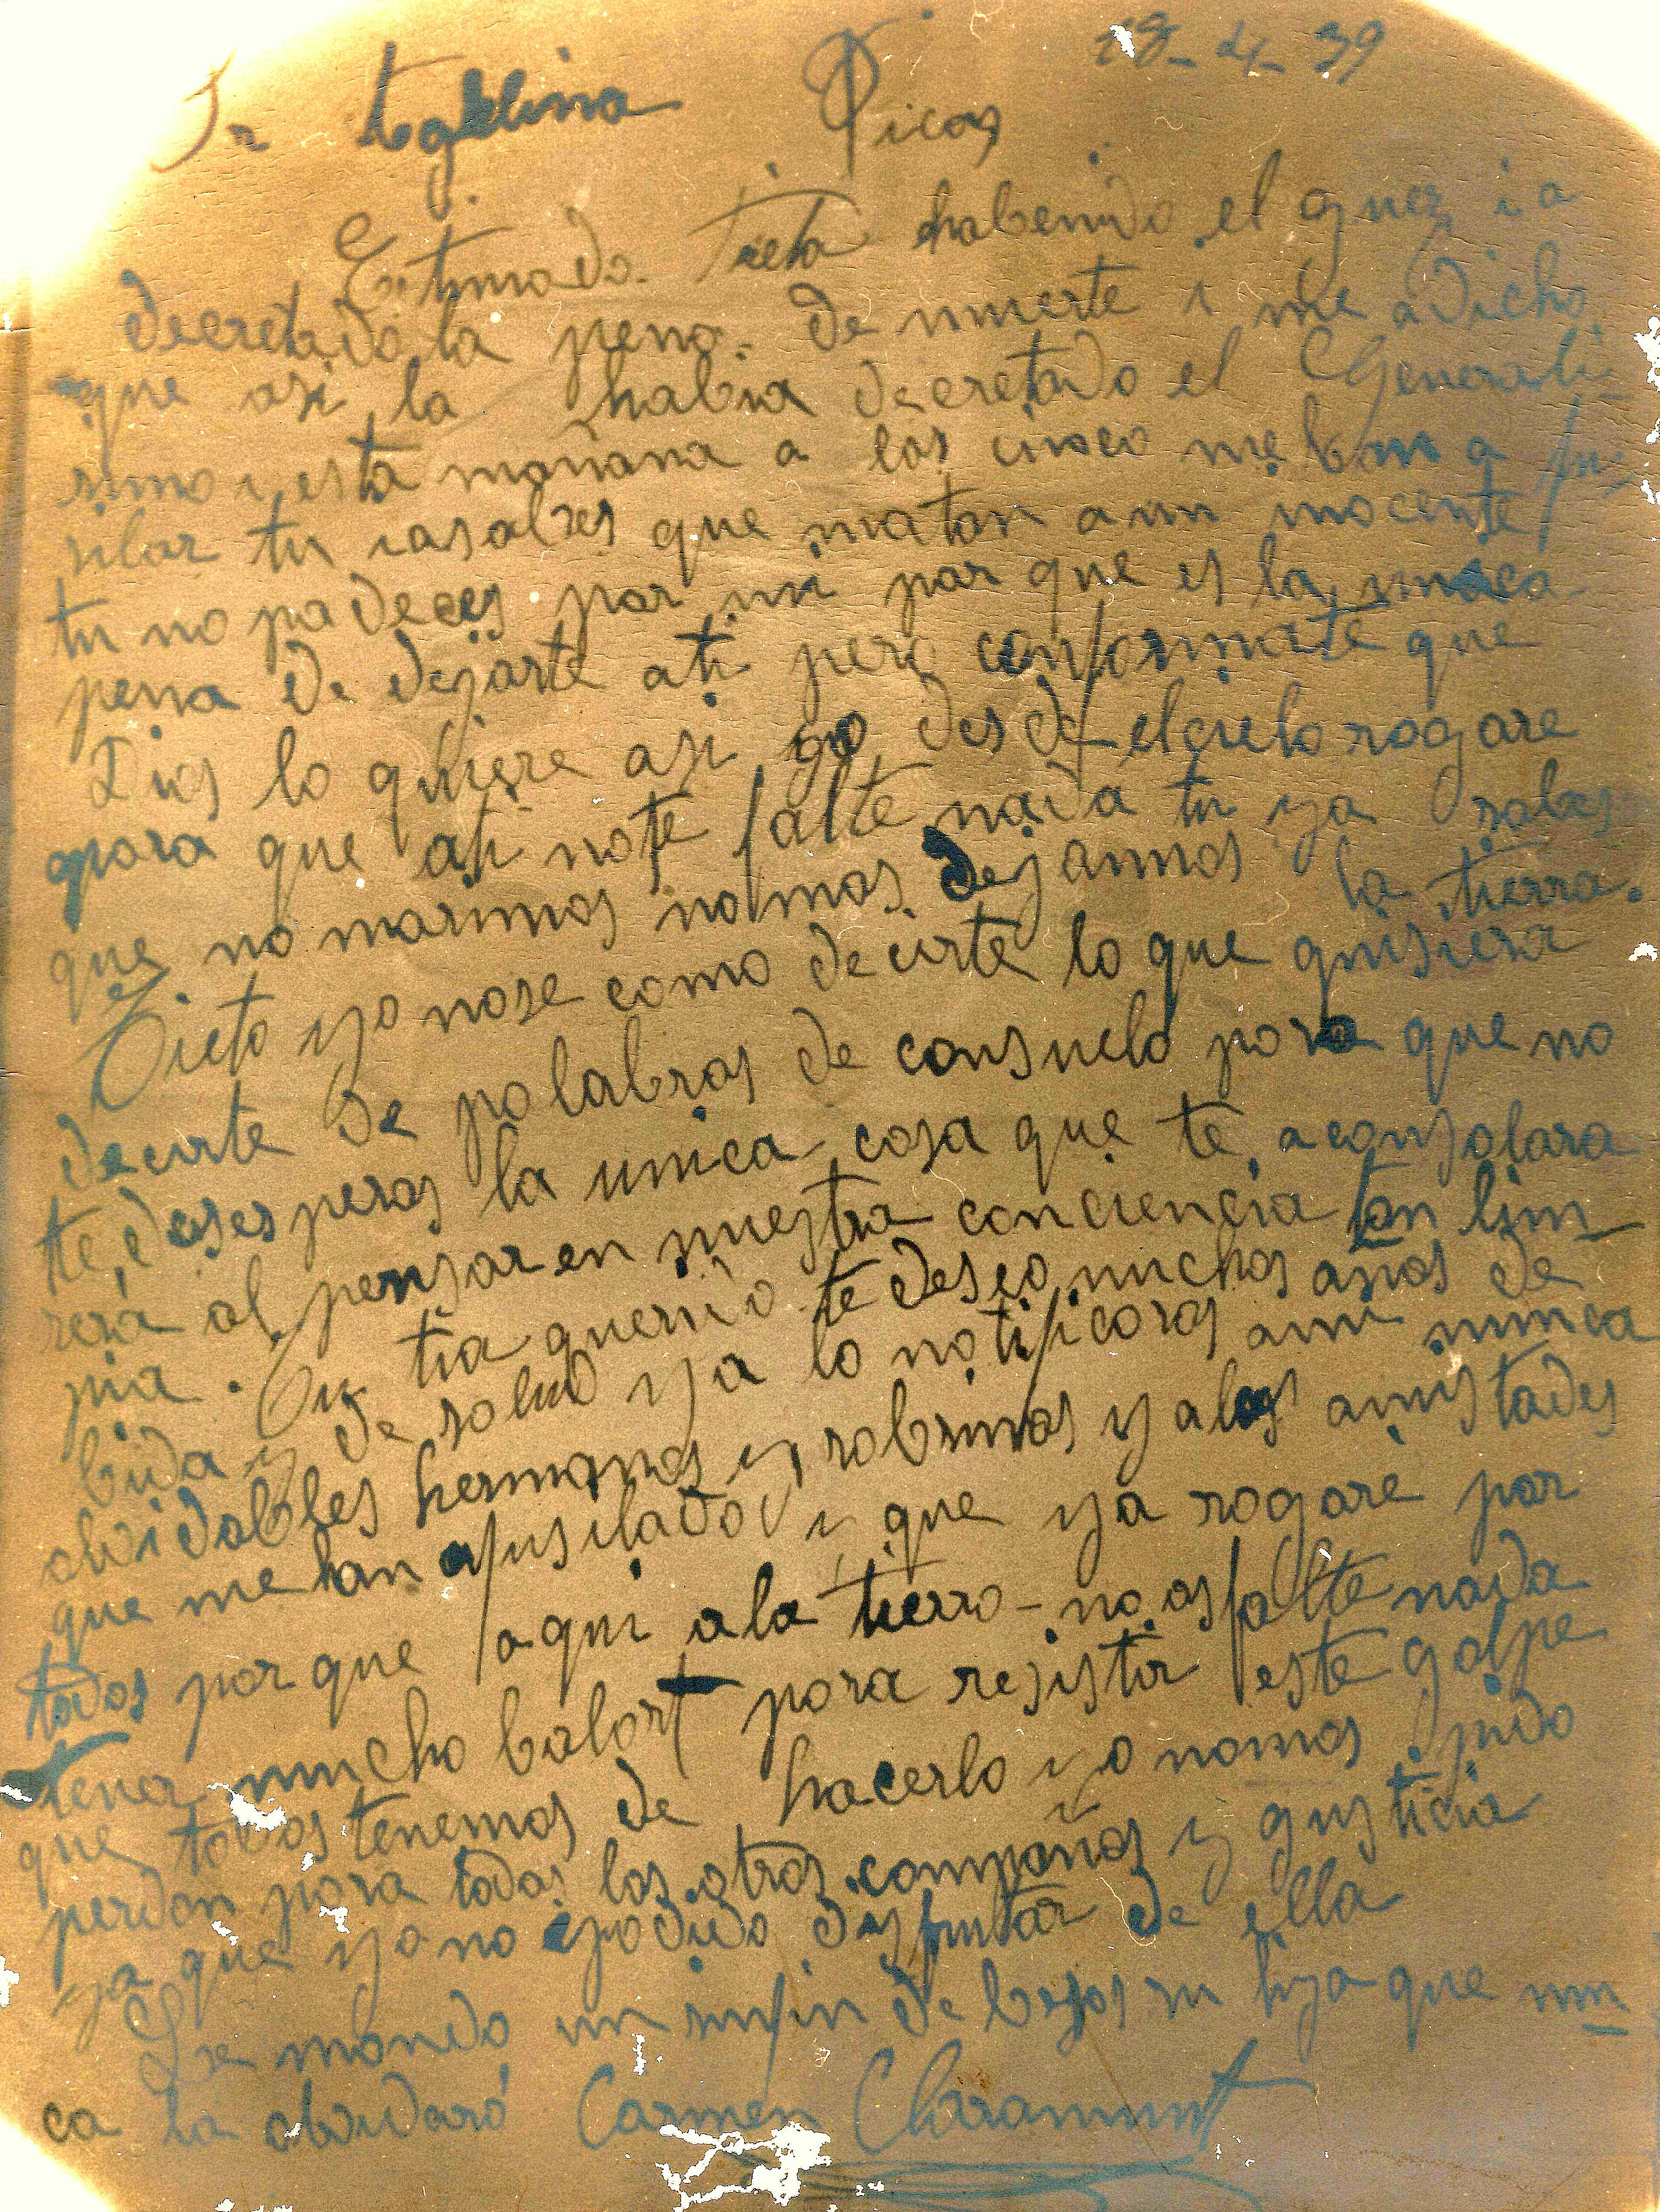 18-4-39
Sr Picas
Estimada Tieta habenido el guez i a
decretado la pena de muerte i me a dicho
que asi la habia decretado el Generali-
simo i esta mañana a las cinco me ban a fu-
silar tu ia sabes que matan a un inocente
tu no padeces por mi por que es la unica
pena de dejarte a ti pero conformate que
Dios lo quiere asi yo desde el cielo rogare
para que a ti no te falte nada tu ya sabes
que no morimos nomas dejamos la tierra.
Tieta yo nose como decirte lo que quisiera
decirte de palabras de consuelo para que no
te, desesperas la unica cosa que te aconsolara
sera al pensar en nuestra conciencia tan lim-
pia. Tu tia querido te deseo muchos años de
bida y de salud ya lo notificaras ami nunca
olvidabbles hermanos y sobrinos y alas amistades
que me han afusilado y que ya rogaré por
todos por que aqui ala tierra no os falte nada
tener mucho balort para resistir este golpe
que todos tenemos de hacerlo yo nomas pido
perdon para todos los otros compañs y gusticia
ya que yo no podido disfrutar de ella
Le mando un sinfin de besos su hija que nun
ca la olvidará Carmen Claramunt